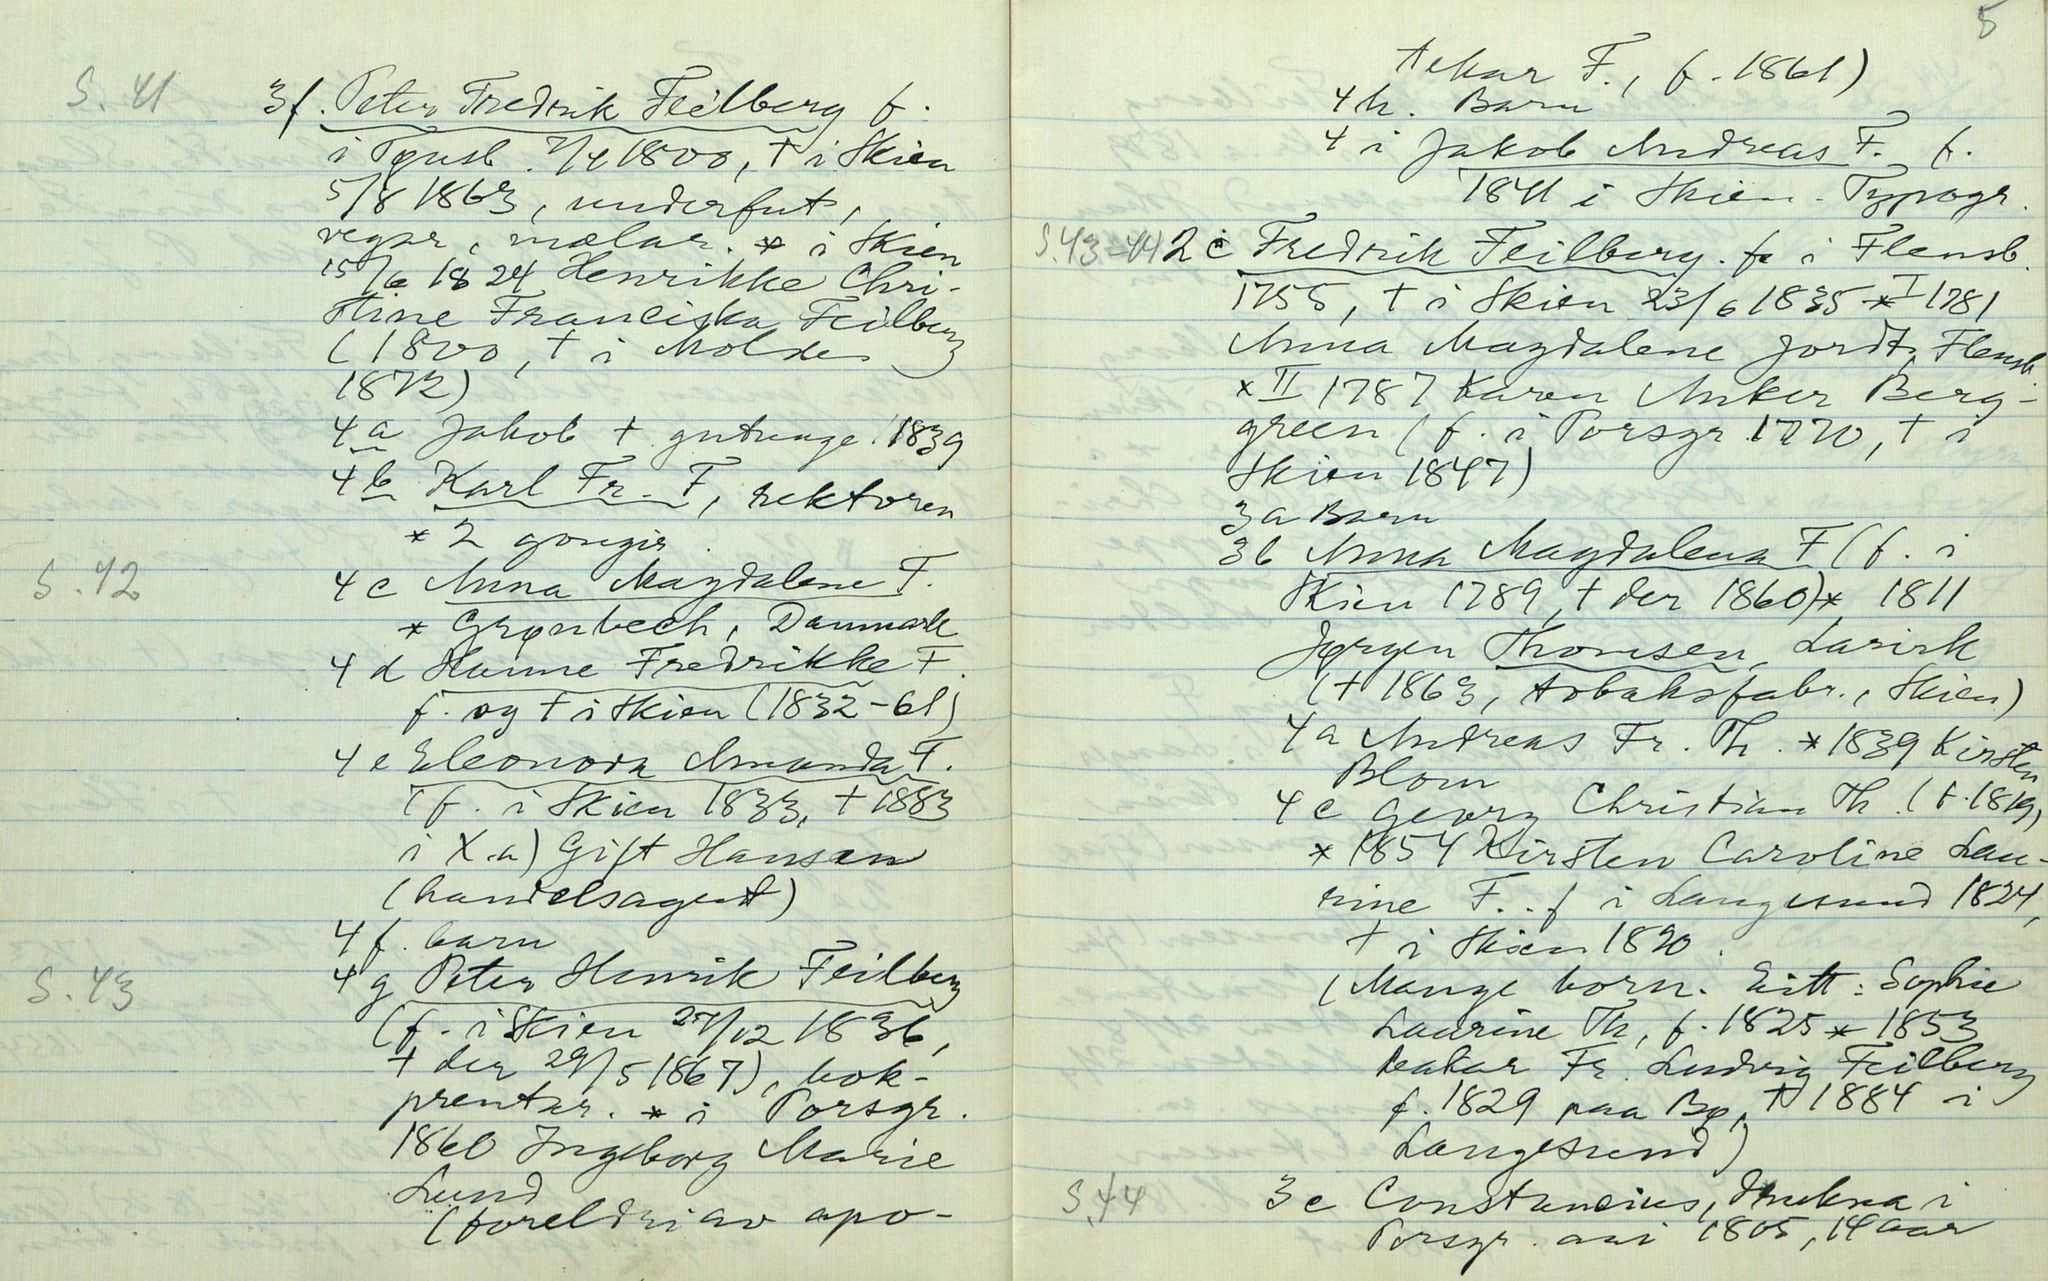 S. 41
3f. Peter Fredrik Feilberg f.
i Tønsb. 7/4 1800, † i Skien
5/8 1863, underfut,
vegar, mælar. * i Skien
15/6 1824 Henrikke Chri-
stine Franciska Feilberg
(1800, † i Molde
1872)
4 a Jakob † gutunge 1839
4 b Karl Fr. F, rektoren
* 2 gongir.
S. 42
4 c Anna Magdalene F.
* Grønbech, Danmark
4 d Hanne Fredrikke F.
f. og † i Skien (1832-61)
4 e Eleonora Amanda F.
(f. i Skien 1833, † 1883
i X.a) Gift Hansen
(handelsagent)
4 f. barn
S. 43
4 g Peter Henrik Feilberg
(f. i Skien 27/12 1836,
† der 29/5 1867), bok-
prentar. * i Porsgr.
1860 Ingeborg Marie
Lund
(foreldri av apo-
5
tekar F., f. 1861)
4 h. Barn
4 i Jakob Andreas F. f.
1841 i Skien. Typogr.
S. 43-44 2 c Fredrik Feilberg. f. i Flensb.
1755, † i Skien 23/6 1835 * I 1781
Anna Magdalene Jordt, Flensb.
* II 1787 Karen Anker Berg-
green (f. i Porsgr. 1770, † i
Skien 1847)
3 a Barn
3 b Anna Magdalena F (f. i
Skien 1789, † der 1860) * 1811
Jørgen Thomsen, Larvik
(† 1863, tobaksfabr., Skien)
4 a Andreas Fr. Th. * 1839 Kirsten
Blom
4 c Georg Christian Th. (f. 1819)
* 1854 Kirsten Caroline Lau-
rine F. f i Langesund 1824,
† i Skien 1890.
(Mange born. Eitt: Sophie
Laurine Th, f. 1825 * 1853
bakar Fr. Ludvig Feilberg
f. 1829 paa Bø, † 1884 i
Langesund)
S. 44
3 c Constancius, drukna i
Porsgr. aai 1805, 14 aar